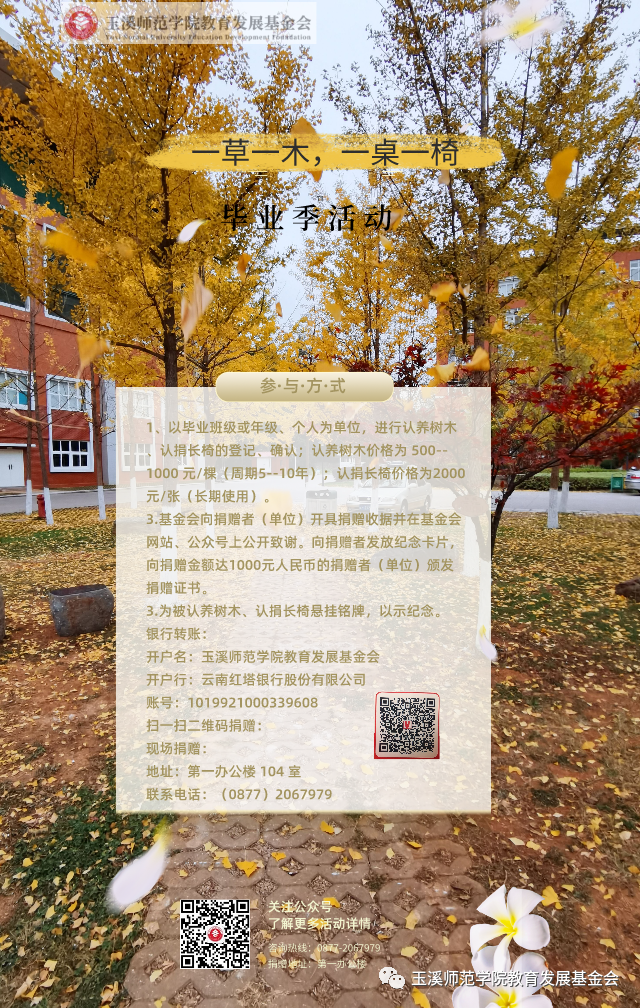 玉溪师范学院教育发展基金会
Yuxi Normal University Education Development Foundation
一草一木，一桌一椅
毕业季活动
参·与·方·式
1、以毕业班级或年级、个人为单位，进行认养树木
认捐长椅的登记、确认；认养树木价格为 500--
1000 元/棵（周期5--10年）；认捐长椅价格为2000
元/张（长期使用）。
3.基金会向捐赠者（单位）开具捐赠收据并在基金会
网站、公众号上公开致谢。向捐赠者发放纪念卡片，
向捐赠金额达1000元人民币的捐赠者（单位）颁发
捐赠证书。
3.为被认养树木、认捐长椅悬挂铭牌，以示纪念。
银行转账：
开户名：玉溪师范学院教育发展基金会
开户行：云南红塔银行股份有限公司
账号：1019921000339608
扫一扫二维码捐赠：
现场捐赠：
地址：第一办公楼 104 室
联系电话：（0877）2067979
关注公众号
了解更多活动详情
咨询热线：0877-2067979
捐赠地址：第一办公楼
玉溪师范学院教育发展基金会